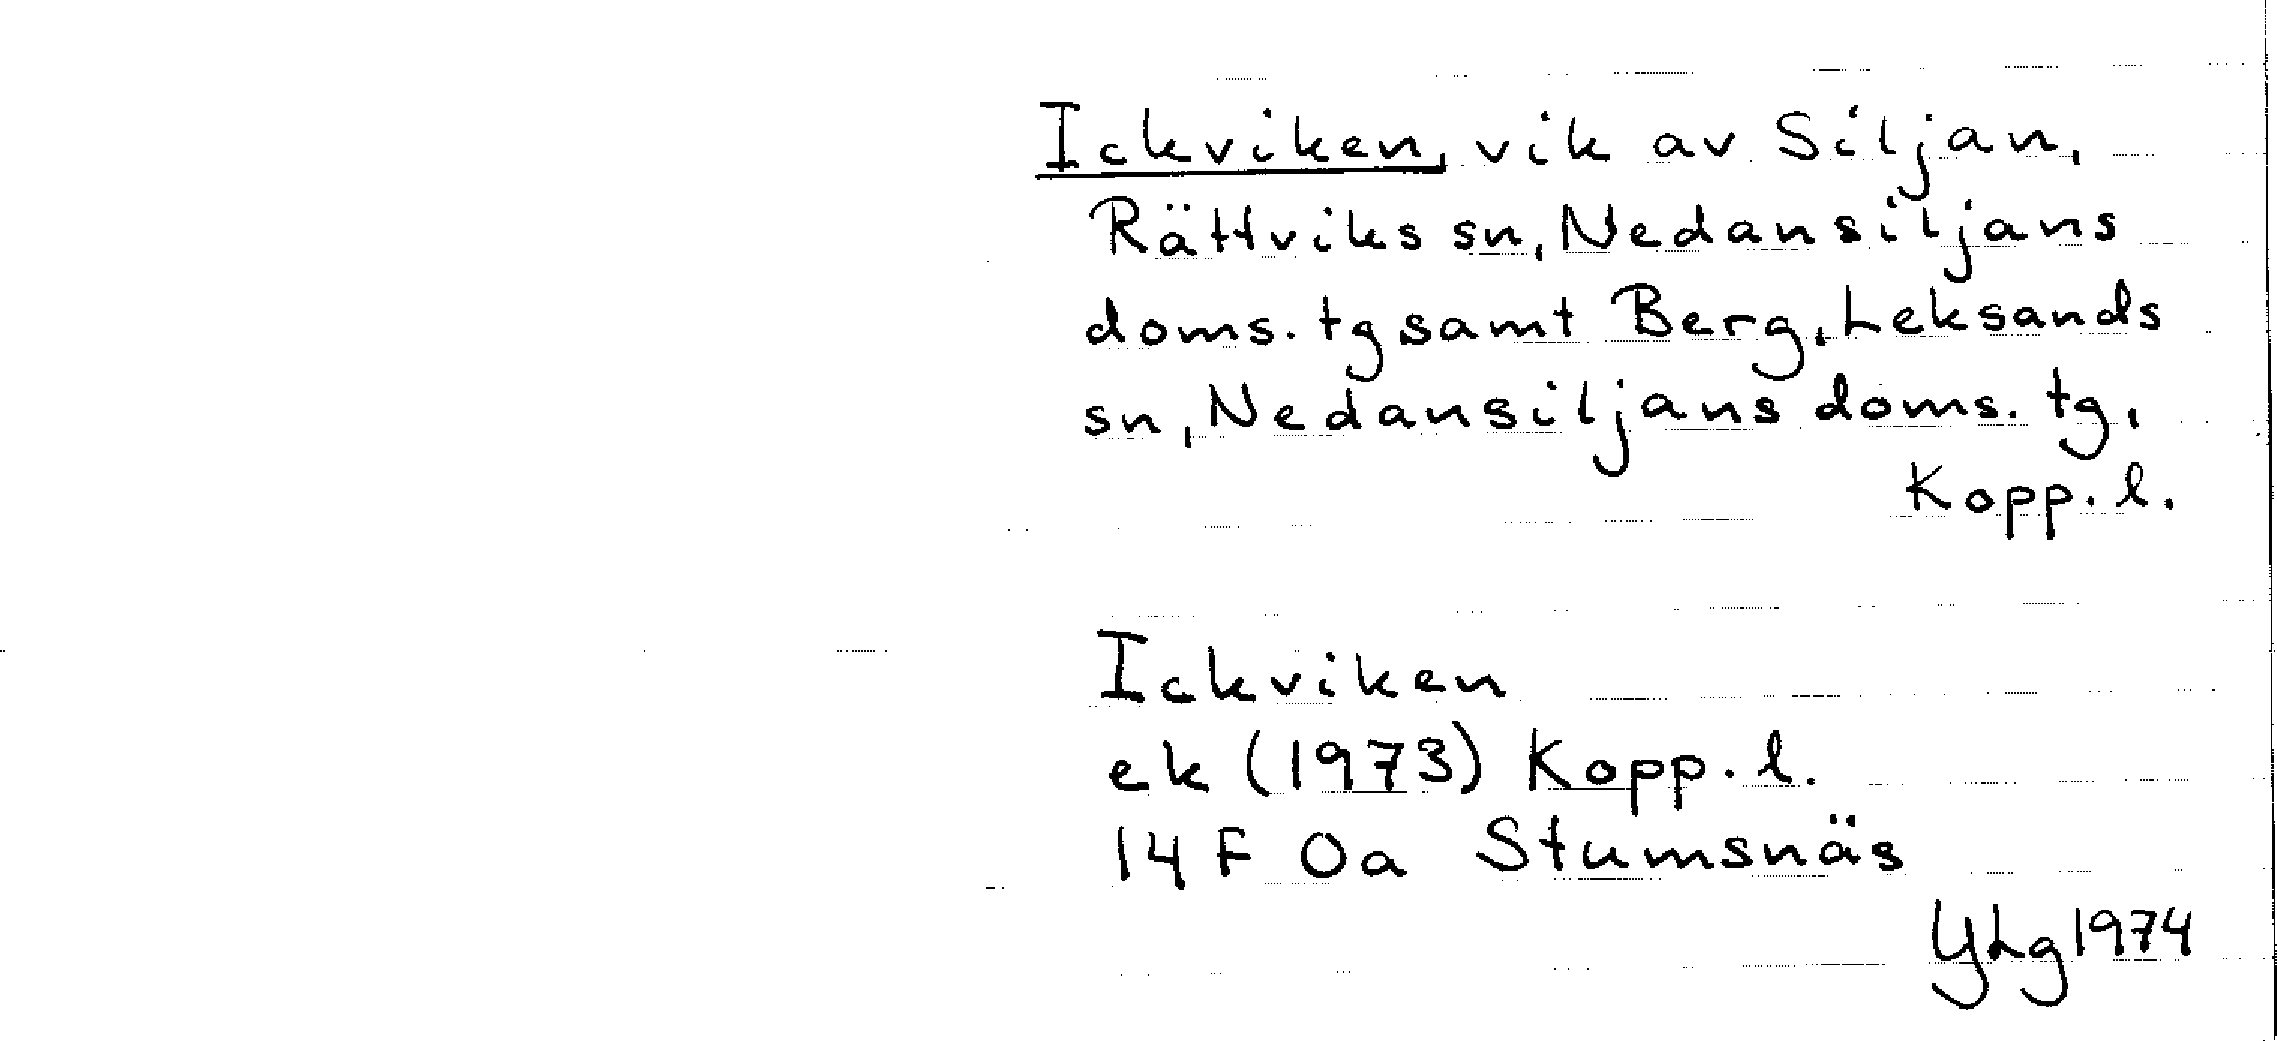 Ickviken, vik av Siljan,
Rättviks sn, Nedansiljans
doms. tg samt Berg, Leksands
sn, Nedansiljans doms. tg,
Kopp. l.
Ickviken
ek (1973) Kopp. l.
14 F 0a Stumsnäs
YLg 1974